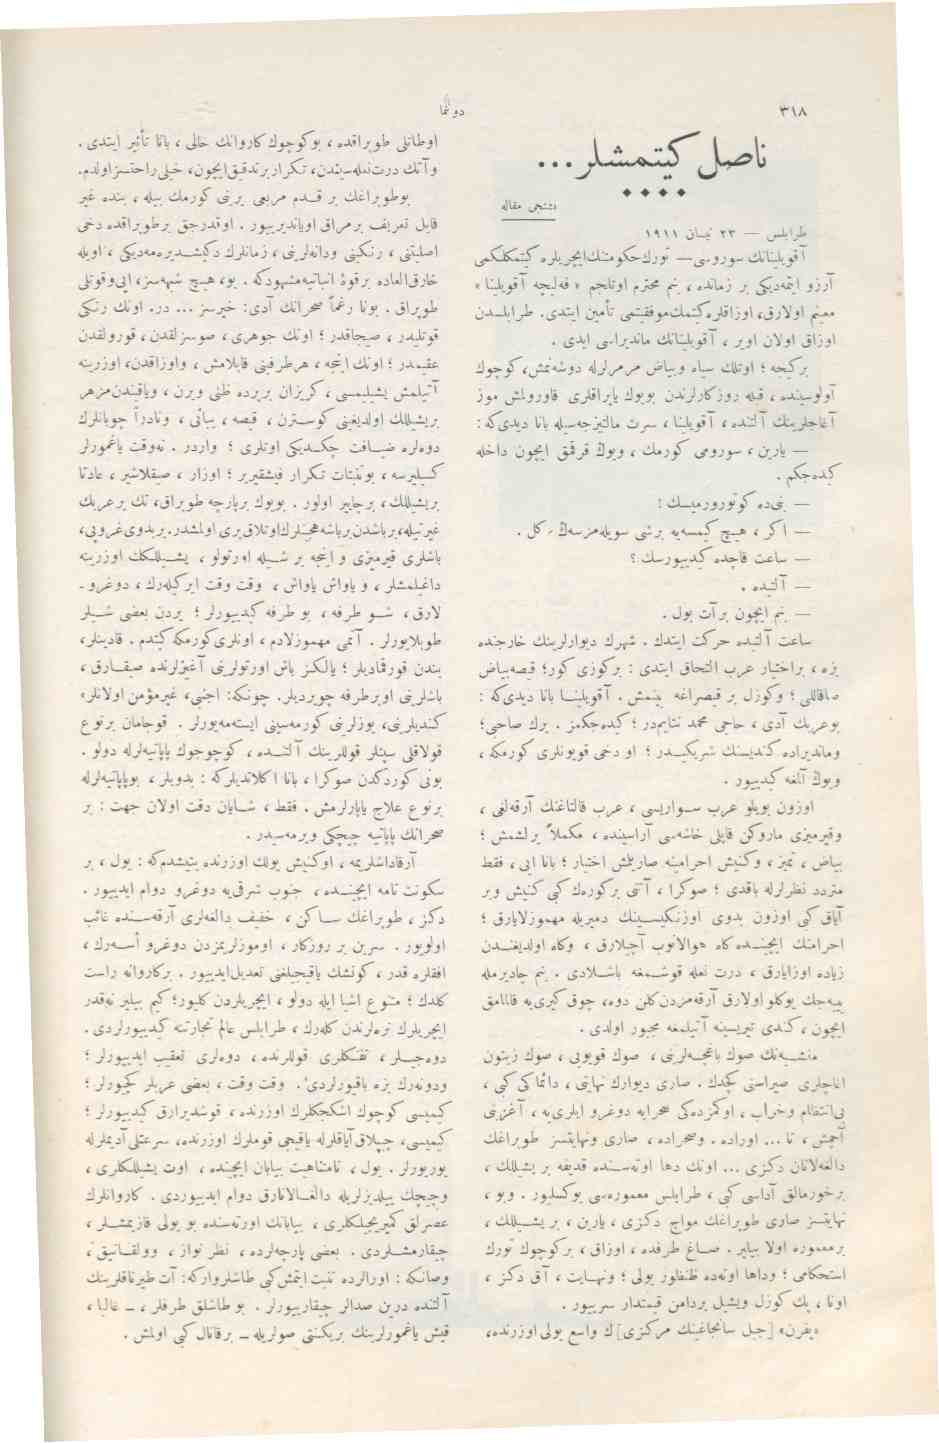 ٣١٨
دوننما
ناصل كیتمشلر...
بشنجی مقاله
طرابلس — ٢٣ نیسان ١٩١١
آقویلینانك سوروسی — تورك حكومتنك ایچریلره كیتمكلكمی
آرزو ایتمه‌دیكی بر زمانده ، بنم محترم اوتلجم « فه‌لیچه آقویلینا »
معینم اولارق، اوزاقلره كیتمك موفقیتمی تأمین ایتدی. طرابلسدن
اوزاق اولان اوبر ، آقویلینانك ماندیراسی ایدی .
بركیجه ؛ اوتلك سیاه وبیاض مرمرلرله دوشه‌نمش، كوچوك
آولوسینده ، قبله روزكارلرندن بویوك یاپراقلری قاورولمش موز
آغاجلرینك آلتنده ، آقویلینا ، سرت مالتیزجه‌سیله بانا دیدی كه :
— یارین ، سورومی كورمك ، ویوڭ قرقمق ایچون داخله
كیده‌جكم .
— بنی ده كوتورورمیسك ؟
— اكر ، هیچ كیمسه‌یه برشی سویله‌مزسه‌ڭ ، كل .
— ساعت قاچده كیدییورسك ؟
— آلتیده .
— بنم ایچون برآت بول .
ساعت آلتیده حركت ایتدك . شهرك دیوارلرینك خارجنده
بزه ، براختیار عرب التحاق ایتدی : بركوزی كور؛ قصه بیاض
صاقاللی ؛ وكوزل بر قیصراغه بینمش . آقویلینا بانا دیدی كه :
بوعربك آدی ، حاجی محمد نتایم‌در ؛ كیده‌جكمز . یرك صاحبی؛
وماندیراده كندیسنك شریكیدر ؛ او دخی قویونلری كورمكه ،
ویوڭ آلمغه كیدییور .
اوزون بویلو عرب سواریسی ، عرب قالتاغنك آرقه‌لغی ،
وقیرمیزی ماروكن قاپلی خاشه‌سی آراسینده ، مكملاً برلشمش ؛
بیاض ، تمیز ، وكنیش احرامینه صاریلمش اختیار ؛ بانا ایی ، فقط
متردد نظرلرله باقدی ؛ صوكرا ، آتنی بركوره‌ك كبی كنیش وبر
آیاق كبی اوزون بدوی اوزنكیسینك دمیریله مهموزلایارق ؛
احرامنك ایچینده كاه هوالانوب آچیلارق ، وكاه اولدیغندن
زیاده اوزایارق ، درت نعله قوشمغه باشلادی . بنم چادیرمله
ییه‌جك یوكلو اولارق آرقه‌مزدن كلن دوه، چوق كیری‌یه قالمامق
ایچون ، كندی تیریسینه آتیلمغه مجبور اولدی .
منشیه‌نك صوك باغچه‌لرینی ، صوك قویویی ، صوك زیتون
اغاجلری صیراسنی كچدك . صاری دیوارك نهایتی ، دائماكی كبی ،
بی‌انتظام وخراب ، اوكمزده‌كی صحرایه دوغرو ایلری‌یه ، آغزینی
آچمش ، تا ... اوراده . وصحراده ، صاری ونهایتسز طوپراغك
دالغه‌لانان دكزی ... اونك دها اوته‌سنده قدیفه بر یشیللك ،
برخورمالق آداسی كبی ، طرابلس معموره‌سی یوكسلیور . وبو ،
نهایتسز صاری طوپراغك مواج دكزی ، یارین ، بر یشیللك ،
برمعموره اولا بیلیر . صاغ طرفده ، اوزاق ، بركوچوك تورك
استحكامی ؛ ودها اوته‌ده ظنظور یولی ؛ ونهایت ، آق دكز ،
اونا ، پك كوزل ویشیل بردامن قیمتدار سرییور .
«یفرن» [جبل سانجاغینك مركزی] ك واسع یولی اوزرنده،
اوطانلی طوپراقده ، بوكوچوك كاروانك خالی ، بانا تأثیر ایتدی .
وآتك درت نعله سیئدن، تكرار بر تدقیق ایچون، خیلی راحتسز اولدم.
بوطوپراغك بر قدم مربعی یرینی كورمك بیله ، بنده غیر
قابل تعریف برمراق اویاندیرییور . اوقدرجق برطوپراقده دخی
اصلیتنی ، رنكینی ودانه‌لرینی ، زمانلرك دكیشدیره‌مه‌دیكی ، اویله
خارق العاده برقوهٔ انباتیه مشهودكه . بو، هیچ شبهه‌سز، ایی وقوتلی
طوپراق . بونا رغماً صحرانك آدی: خیرسز ... در. اونك رنكی
قوتلیدر ، صیجاقدر ؛ اونك جوهری ، صوسزلقدن ، قورولقدن
عقیمدر ؛ اونك اینجه ، هرطرفینی قاپلامش ، واوزاقدن، اوزرینه
آتیلمش یشیلیمسی ، كریزان بربرده ظنی ویرن ، ویاقیندن مزهر
بریشیللك اولدیغینی كوسترن ، قیصه ، یبانی ، ونادراً چوبانلرك
دوه‌لره ضیافت چكدیكی اوتلری ؛ واردر . نه‌وقت یاغمورلر
كسیلیرسه ، بونباتات تكرار فیشقیریر ؛ اوزار ، صیقلاشیر ، عادتا
بریشیللك ، برچاییز اولور . بویوك برپارچه طوپراق، تك برعربك
غیرتیله، برباشدن برباشه هجینلرك اوتلاق یری اولمشدر. بربدوی غروپی،
باشلری قیرمیزی و اینجه بر شیله اورتولو ، یشیللكك اوزرینه
داغیلمشلر ، و یاواش یاواش ، وقت وقت ایركیله‌رك ، دوغرو-
لارق ، شو طرفه ، بو طرفه كیدییورلر ؛ یردن بعضی شیلر
طوپلایورلر . آتمی مهموزلادم ، اونلری كورمكه كیتدم . قادینلر،
بندن قورقمادیلر ؛ یالكز باش اورتولرینی آغیزلرنده صیقارق ،
باشلرینی اوبرطرفه چویردیلر. چونكه: اجنبی، غیرمؤمن اولانلر،
كندیلرینی، یوزلرینی كورمه‌سینی ایسته‌مه‌یورلر . قوجامان برنوع
قولاقلی سپتلر قوللرینك آلتنده ، كوچوجوك پاپاتیه‌لرله دولو .
بونی كوردكدن صوكرا ، بانا اكلاتدیلركه : بدویلر ، بوپاپاتیه‌لرله
برنوع علاج یاپارلرمش . فقط ، شایان دقت اولان جهت : بر
صحرانك پاپاتیه چیچكی ویرمه‌سیدر .
آرقاداشلریمه ، اوكنیش یولك اوزرنده یتیشدم كه : یول ، بر
سكونت تامه ایچینده ، جنوب شرقی‌یه دوغرو دوام ایدییور .
دكز ، طوپراغك ساكن ، خفیف دالغه‌لری آرقه‌سنده غائب
اولویور . سرین بر روزكار ، اوموزلریمزدن دوغرو أسه‌رك ،
افقلره قدر ، كونشك یاقیجیلغنی تعدیل ایدییور . بركاروانه راست
كلدك ؛ متنوع اشیا ایله دولو ، ایچریلردن كلیور؛ كیم بیلیر نه‌قدر
ایچریلرك نره‌لرندن كله‌رك ، طرابلس عالم تجارتنه كیدییورلردی .
دوه‌جیلر ، تفنكلری قوللرنده ، دوه‌لری تعقیب ایدییورلر ؛
ودونه‌رك بزه باقیورلردی . وقت وقت ، بعضی عربلر كچیورلر ؛
كیمیسی كوچوك اشككلرك اوزرنده ، قوشدیرارق كیدییورلر ؛
كیمیسی، چیپلاق آیاقلرله یاقیجی قوملرك اوزرنده، سرعتلی آدیملرله
یورییورلر . یول ، نامتناهیت بیابان ایچنده ، اوت یشیللكلری ،
وچیچك ییلدیزلریله دالغالانارق دوام ایدییوردی . كاروانلرك
عصرلق كیریجیلكلری ، بیابانك اورته‌سنده بو یولی قازیمشلر ،
چیقارمشلردی . بعضی پارچه‌لرده ، نظر نواز ، وولقانیق ،
وصانكه : اورالرده تنبت ایتمش كبی طاشلر واركه: آت طیرناقلرینك
آلتنده درین صدالر چیقارییورلر . بو طاشلق طرفلر ، — غالبا ،
قیش یاغمورلرینك بریكنتی صولریله — برقانال كبی اولمش .